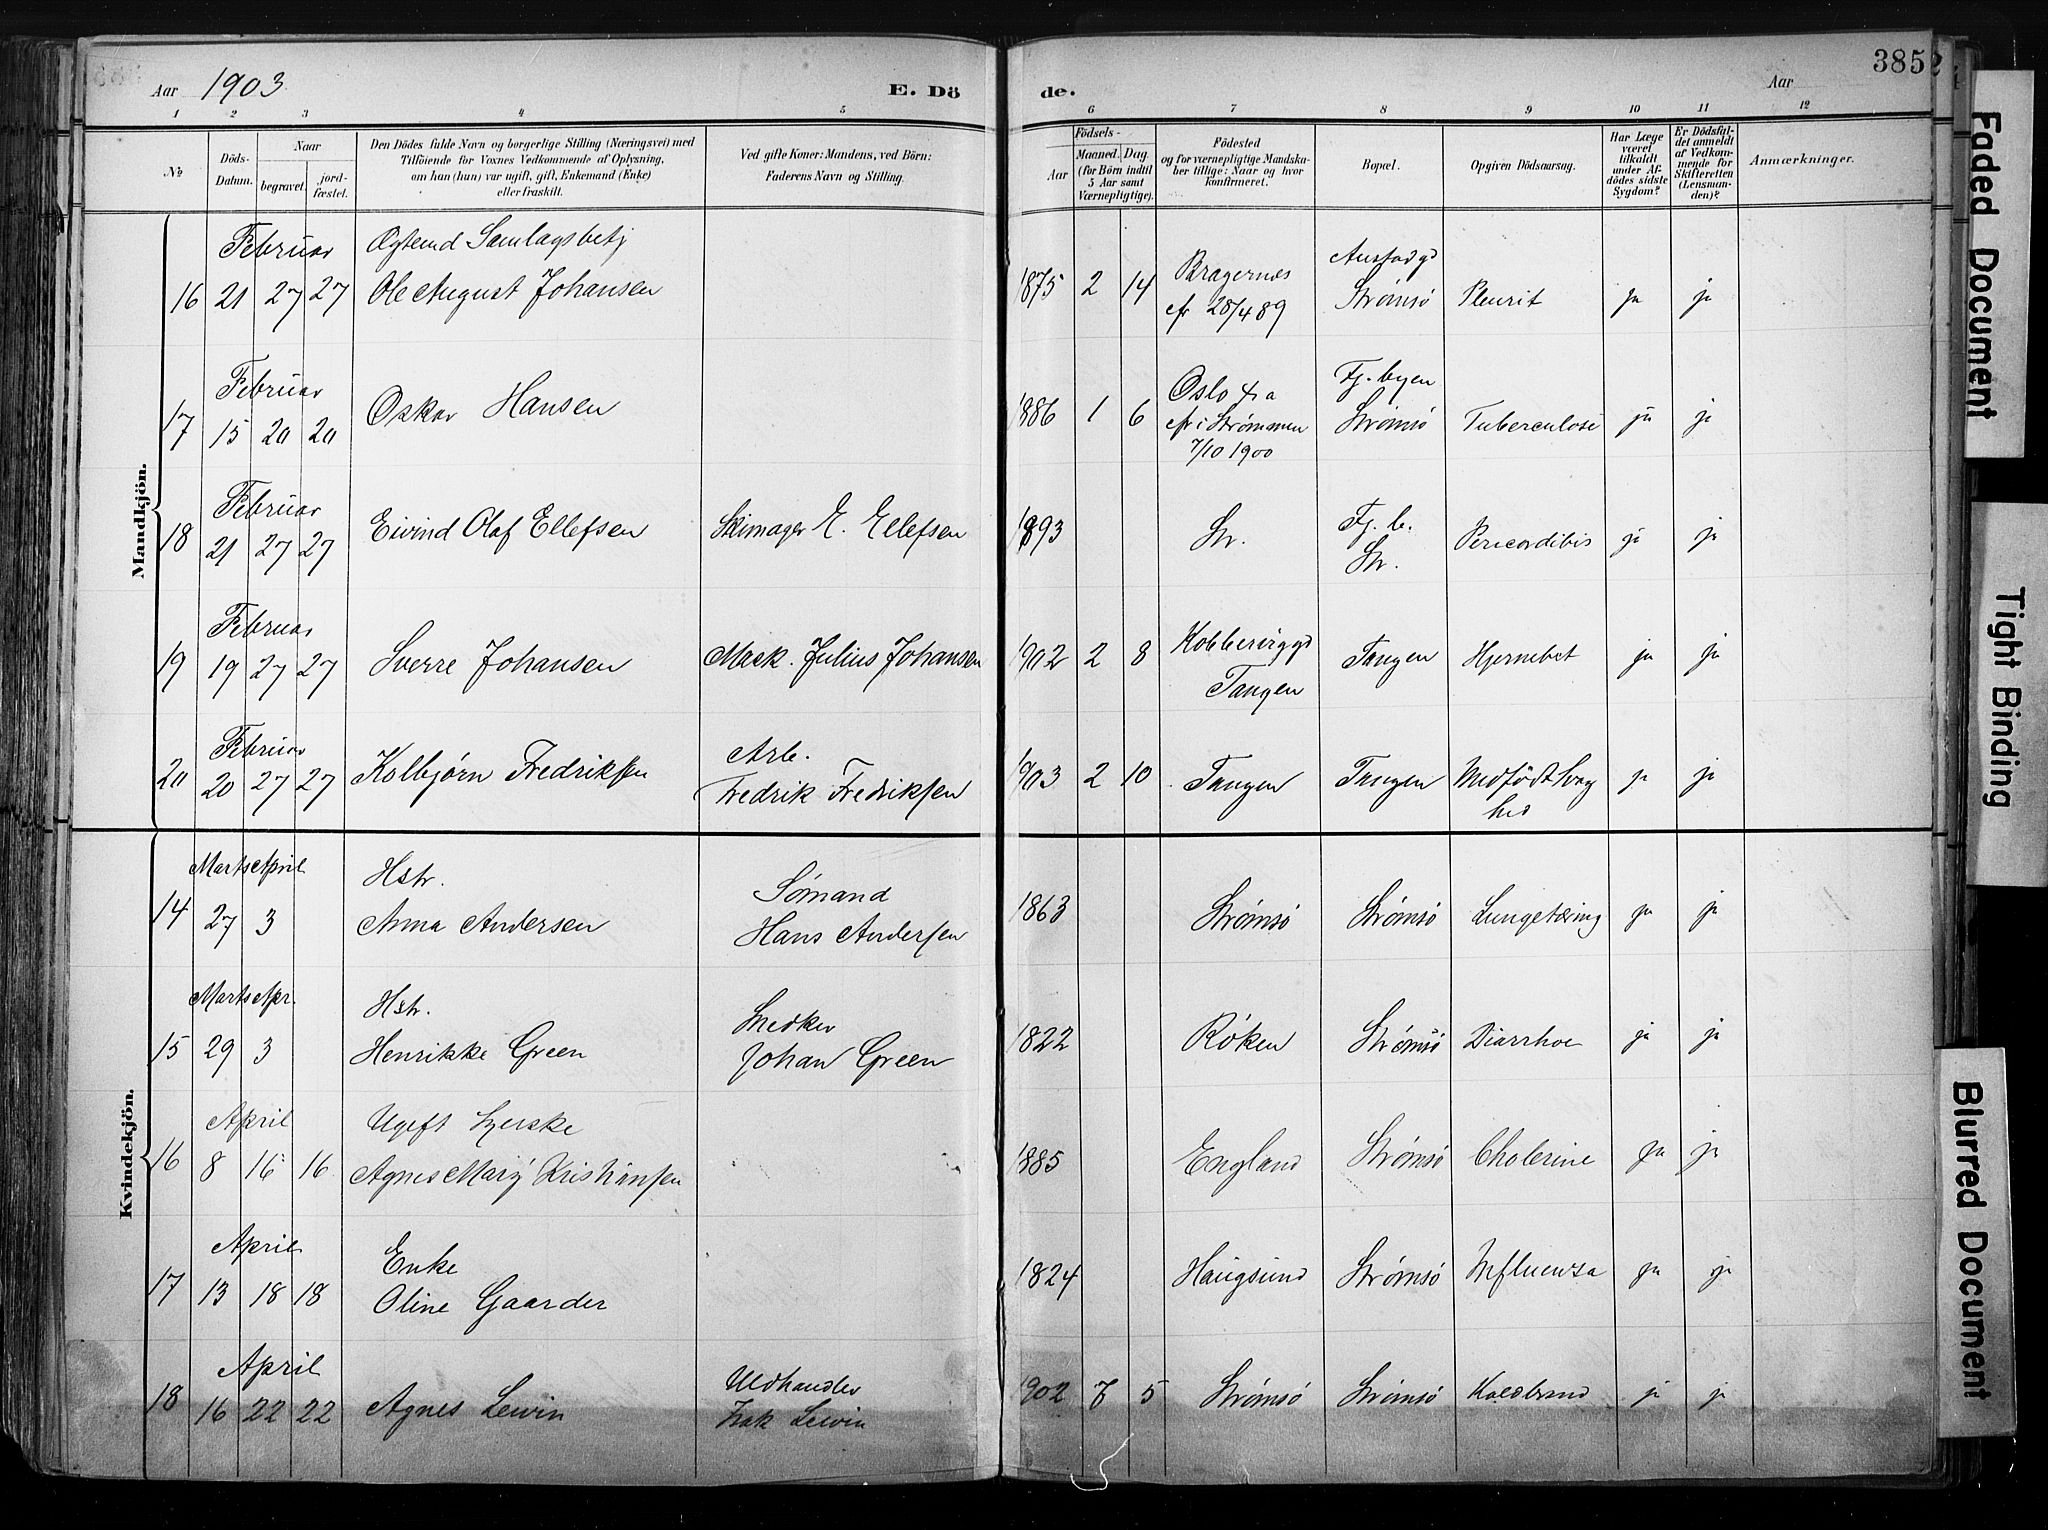 Aar 1903
E. Dö
de.
Aar
385
1 2 3 4 5 6 7 8 9 10 11 12
№
Döds-
Datum.
Naar
begravet.
jord-
fæstet.
Den Dödes fulde Navn og borgerlige Stilling (Næringsvei) med
Tilföiende for Voxnes Vedkommende af Oplysning,
om han (hun) var ugift, gift, Enkemand (Enke)
eller fraskilt.
Ved gifte Koner: Mandens, ved Börn:
Faderens Navn og Stilling.
Födsels-
Aar
Maaned. Dag.
(for Börn indtil
5 Aar samt
Værnepligtige).
Födested
og for værnepligtige Mandska-
ber tillige: Naar og hvor
konfirmeret.
Bopæl.
Opgiven Dödsaarsag.
Har Læge
været
tilkaldt
under Af-
dödes sidste
Sygdom?
Er Dödsfal-
det anmeldt
af Vedkom-
mende for
Skifteretten
(Lensman-
den)?
Anmærkninger.
Mandkjön.
Februar Ogtemd Samlagsbetj Austadgd
16 21 27 27 Ole August Johansen 1875 2 14 Bragernes Strømsö Pleurit ja ja
cfr 28/4 89
Februar Oslo Fj. byen
17 15 20 20 Oskar Hansen 1886 1 6 cfr i Strømmen Strømsö Tuberculose ja ja
7/10 1900
Februar Fj. b.
18 21 27 27 Eivind Olaf Ellefsen Skimager E. Ellefsen 1893 Str. Str. Pericarditis ja ja
Februar Kobbervigd
19 19 27 27 Sverre Johansen Mask. Julius Johansen 1902 2 8 Tangen Tangen Hjernebet ja ja
Februar Arb.
20 20 27 27 Kolbjørn Fredriksen Fredrik Fredriksen 1903 2 10 Tangen Tangen Medfödt Svag
hed ja ja
Kvindekjön.
Marts April Hstr. Sømand
14 27 3 Anna Andersen Hans Andersen 1863 Strømsö Strømsö Lungetæring ja ja
Marts Apr. Hstr. Snedker
15 29 3 Henrikke Green Johan Green 1822 Röken Strømsö Diarrhoe ja ja
April Ugift
16 8 16 16 Agnes Mary Kristiansen 1885 England Strømsö Cholerine ja ja
April Enke
17 13 18 18 Oline Gaarder 1824 Haugsund Strømsö Influenza ja ja
April Uldhandler
18 16 22 22 Agnes Lewin Isak Lewin 1902 7 5 Strømsö Strømsö Koldbrand ja ja
Faded Document
Tight Binding
Blurred Document